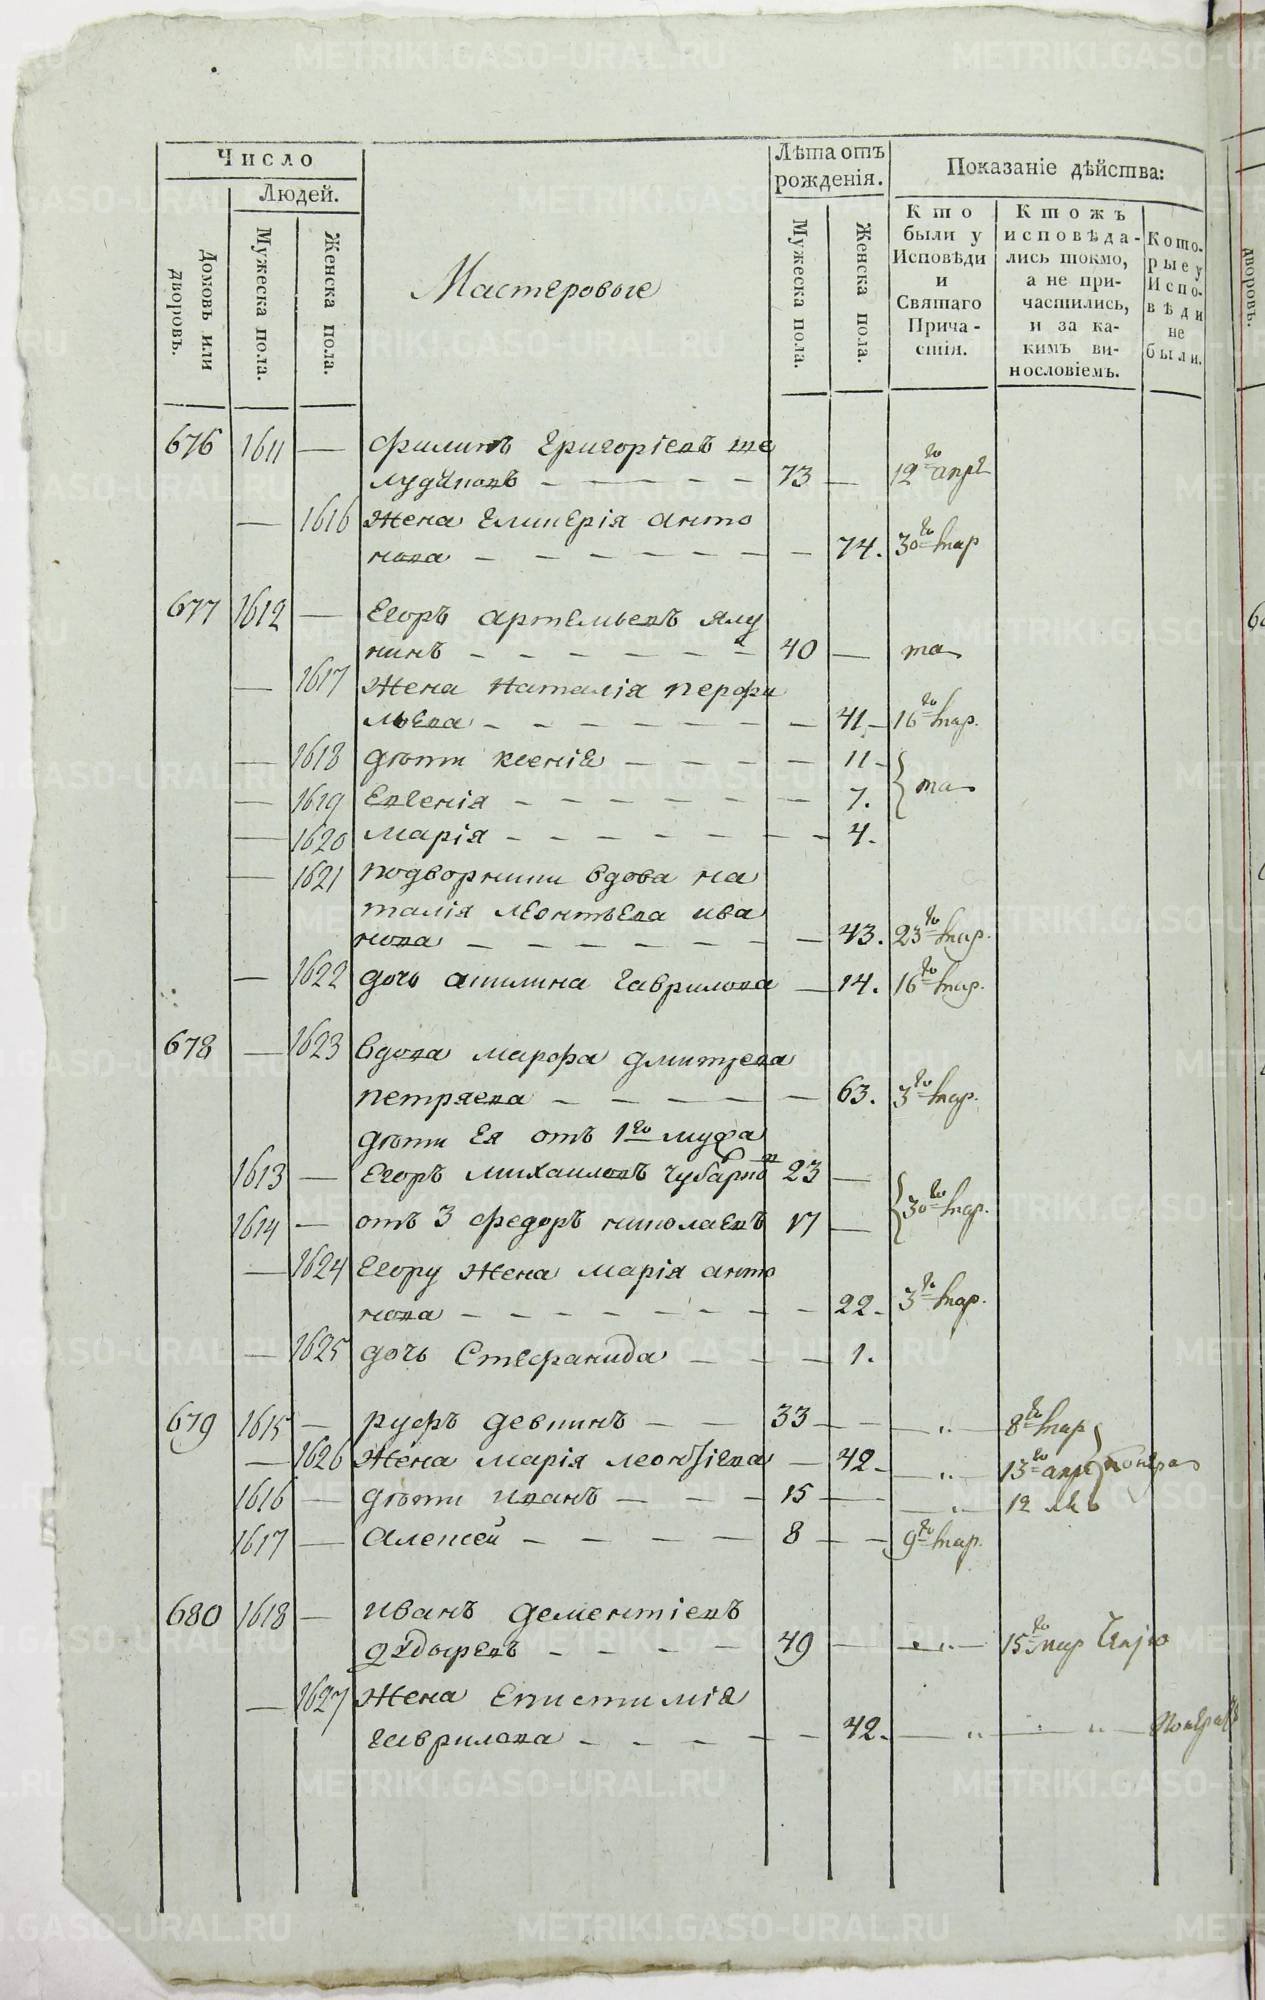 Число
Людей.
Домовъ или дворовъ.
Мужеска пола.
Женска пола.
Мастеровые
Лѣта отъ рожденія.
Мужеска пола.
Женска пола.
Показаніе дѣйства:
Кто были у Исповѣди и Святаго Причастія.
Ктожъ исповѣдались токмо, а не причастились, и за какимъ винословіемъ.
Которые у Исповѣди не были.
676 1611 — Филипъ Григоріевъ ше
лудяковъ — — — — — 73 — 12го апр
— 1616 Жена Гликерія Анто
нова — — — — — — 74. 30го мар
677 1612 — Егоръ Артемьевъ Ялу
нинъ — — — — — — 40 — та
— 1617 Жена Наталія Перфи
льева — — — — — — 41 — 16го мар.
— 1618 дѣти Ксенія — — — — 11 —
— 1619 Евгенія — — — — — 7. та
— 1620 Марія — — — — — 4.
— 1621 подворники вдова на
талія Леонтьева Ива
нова — — — — — — 43. 23го мар.
— 1622 дочь Акилина Гаврилова — 14. 16го мар.
678 — 1623 вдова Марфа Дмитрева
Петряева — — — — — 63. 3го мар.
дѣти ея отъ 1го мужа
1613 — Егоръ Михаиловъ 23 —
1614 — отъ 3 Федоръ Николаевъ 17 — 30го мар.
— 1624 Егору Жена Марія Анто
нова — — — — — — 22 — 3го мар.
— 1625 дочь Стефанида — — — 1.
679 1615 — Руфъ Девкинъ — — 33 — — — „ — 8го мар
— 1626 Жена Марія Леонтіева — 42 — — „ — 13го апр
1616 — дѣти Иванъ — — — 15 — — — „ — 12
1617 — Алексей — — — — 8 — — 9го мар.
680 1618 — Иванъ Дементіевъ
— — — — 49 — — „ — 15го мар
— 1627 Жена Епистимія
Гаврилова — — — — — 42 — — „ — „ —
METRIKI.GASO-URAL.RU